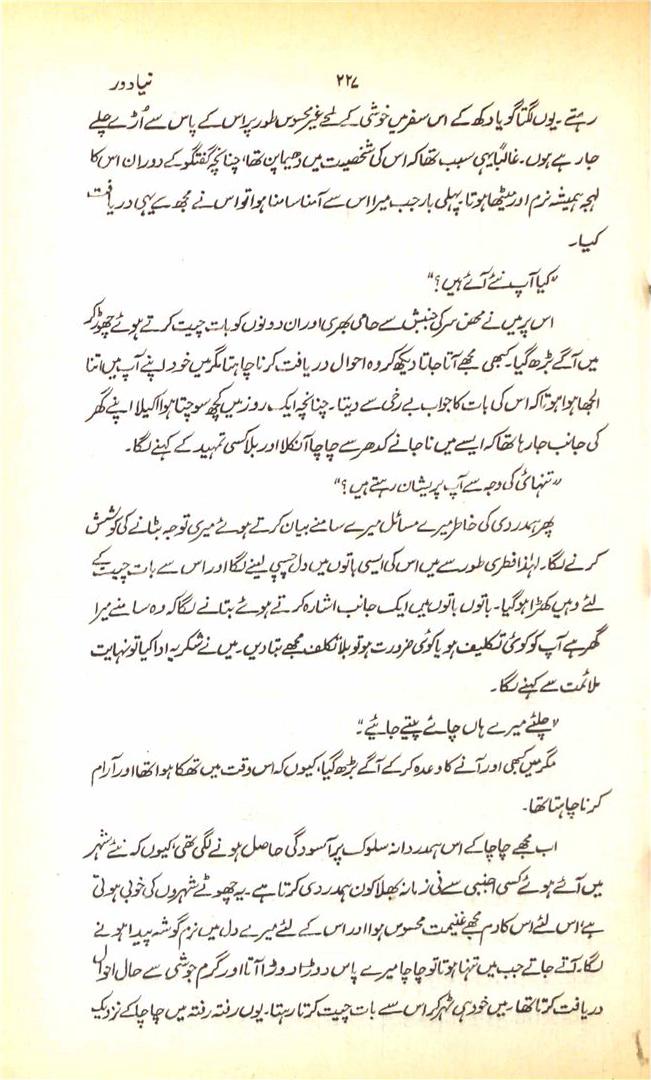 نیا دور
۲۲۷
رہتے۔ یوں لگتا گویا دکھ کے اس سفر میں خوشی کے لمحے غیر محسوس طور پر اس کے پاس سے اُڑے چلے
جا رہے ہوں۔ غالباً یہی سبب تھا کہ اس کی شخصیت میں دھیما پن تھا، چنانچہ گفتگو کے دوران اس کا
لہجہ ہمیشہ نرم اور میٹھا ہوتا۔ پہلی بار جب میرا اس سے آمنا سامنا ہوا تو اس نے مجھ سے یہی دریافت
کیا۔
"کیا آپ نئے آئے ہیں؟"
اس پر میں نے محض سر کی جنبش سے حامی بھری اور ان دونوں کو بات چیت کرتے ہوئے چھوڑ کر
میں آگے بڑھ گیا۔ کبھی مجھے آتا جاتا دیکھ کر وہ احوال دریافت کرنا چاہتا مگر میں خود اپنے آپ میں اتنا
الجھا ہوا ہوتا کہ اس کی بات کا جواب بے رخی سے دیتا۔ چنانچہ ایک روز میں کچھ سوچتا ہوا اکیلا اپنے گھر
کی جانب جا رہا تھا کہ ایسے میں نا جانے کدھر سے چاچا آ نکلا اور بلا کسی تمہید کے کہنے لگا۔
"تنہائی کی وجہ سے آپ پریشان رہتے ہیں؟"
پھر ہمدردی کی خاطر میرے مسائل میرے سامنے بیان کرتے ہوئے میری توجہ بٹانے کی کوشش
کرنے لگا۔ لہٰذا فطری طور سے میں اس کی ایسی باتوں میں دل چسپی لینے لگا اور اس سے بات چیت کے
لئے وہیں کھڑا ہو گیا۔ باتوں باتوں میں ایک جانب اشارہ کرتے ہوئے بتانے لگا کہ وہ سامنے میرا
گھر ہے آپ کو کوئی تکلیف ہو یا کوئی ضرورت ہو تو بلا تکلف مجھے بتا دیں۔ میں نے شکریہ ادا کیا تو نہایت
ملائمت سے کہنے لگا۔
"چلئے میرے ہاں چائے پیتے جائیے۔"
مگر میں کبھی اور آنے کا وعدہ کر کے آگے بڑھ گیا، کیوں کہ اس وقت میں تھکا ہوا تھا اور آرام
کرنا چاہتا تھا۔
اب مجھے چاچا کے اس ہمدردانہ سلوک پر آسودگی حاصل ہونے لگی تھی، کیوں کہ نئے شہر
میں آئے ہوئے کسی اجنبی سے فی زمانہ بھلا کون ہمدردی کرتا ہے۔ یہ چھوٹے شہروں کی خوبی ہوتی
ہے، اس لئے اس کا دم مجھے غنیمت محسوس ہوا اور اس کے لئے میرے دل میں نرم گوشہ پیدا ہونے
لگا۔ آتے جاتے جب میں تنہا ہوتا تو چاچا میرے پاس دوڑا دوڑا آتا اور گرم جوشی سے حال احوال
دریافت کرتا تھا۔ میں خود ہی ٹھہر کر اس سے بات چیت کرتا رہتا۔ یوں رفتہ رفتہ میں چاچا کے نزدیک